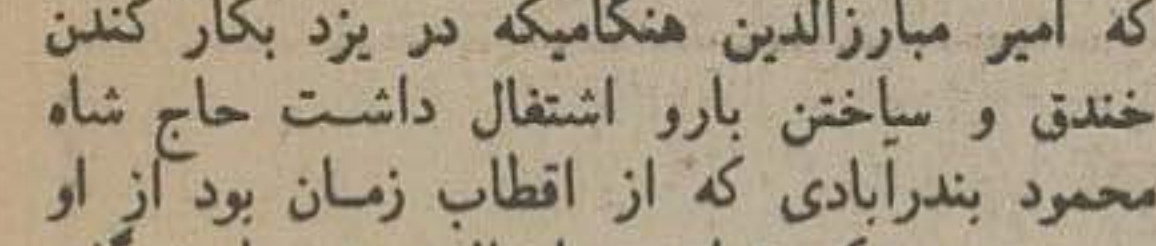 که امیر مبارزالدین هنگامیکه در یزد بکار کندن
خندق و ساختن بارو اشتغال داشت حاج شاه
محمود بندرآبادی که از اقطاب زمان بود از او